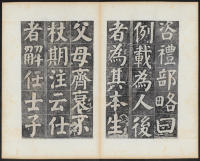 咨禮部略曰
例載為人後
者為其本生
父母齊衰不
杖期注云仕
者解任士子